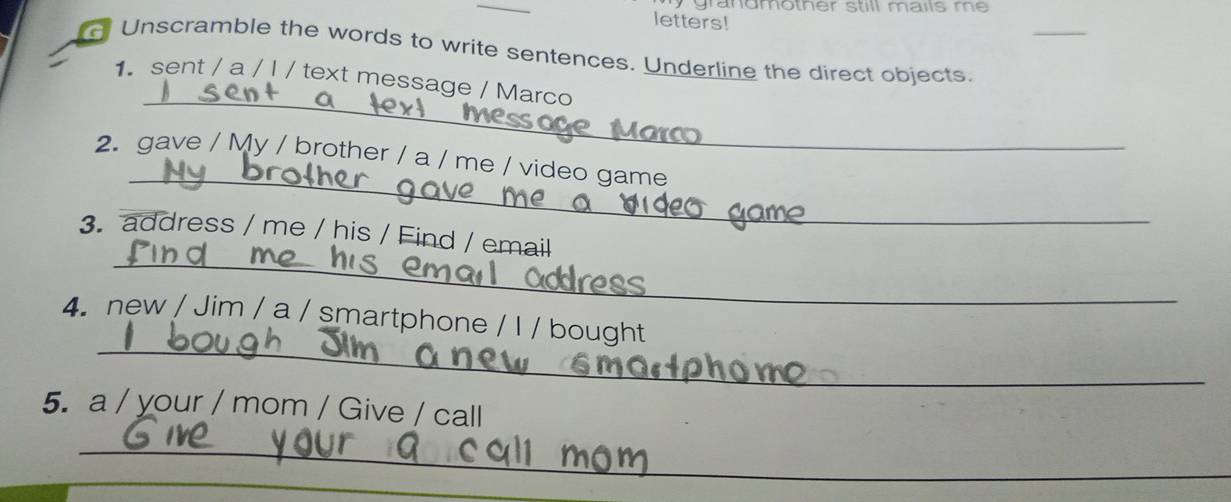 My grandmother still mails me
letters!
G Unscramble the words to write sentences. Underline the direct objects.
1. sent / a / I / text message / Marco
I sent a text message Marco
2. gave / My / brother / a / me / video game
My brother gave me a video game
3. address / me / his / Find / email
find me his email address
4. new / Jim / a / smartphone / I / bought
I bough Jim a new smartphome
5. a / your / mom / Give / call
Give your a call mom